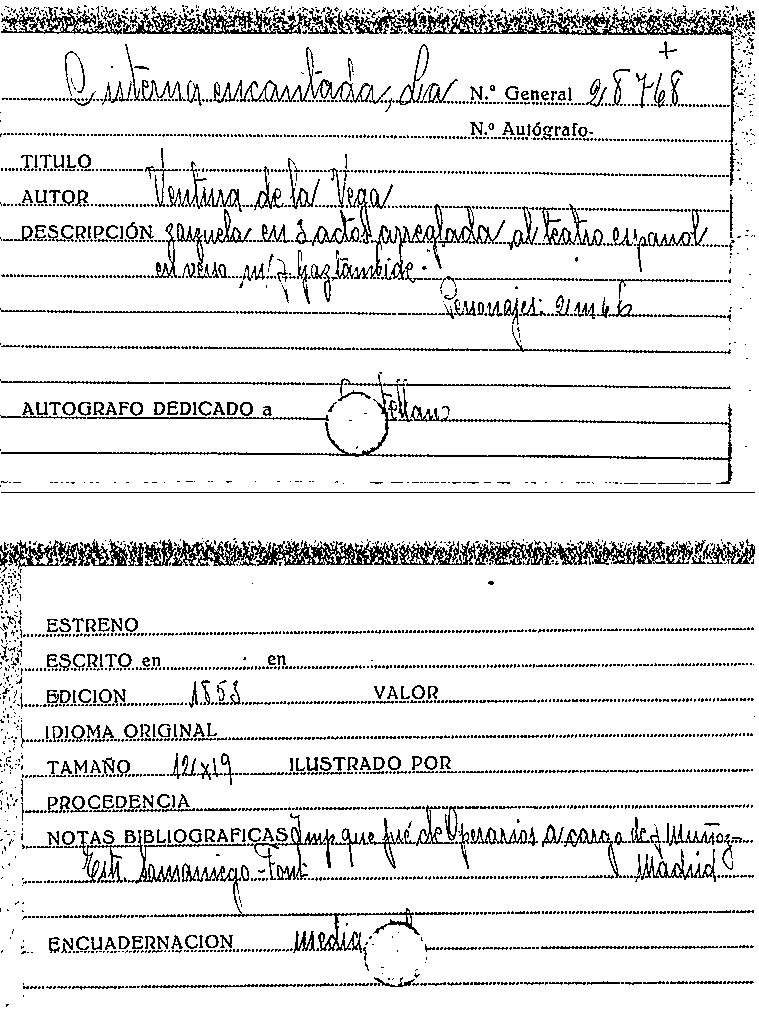 Cisterna encantada, La N.º General 28768
+
N.º Autógrafo-
TITULO
AUTOR Ventura de la Vega
DESCRIPCIÓN zarzuela en 3 actos arreglada al teatro español
en verso m. J Gaztambide.
Personajes: 2 m 6 h
AUTOGRAFO DEDICADO a
ESTRENO
ESCRITO en en
EDICION 1853 VALOR
IDIOMA ORIGINAL
TAMAÑO 12x19 ILUSTRADO POR
PROCEDENCIA
NOTAS BIBLIOGRAFICAS Imp que fué de Operarios a cargo de J Muñoz-
Samaniego-Font Madrid
ENCUADERNACION media